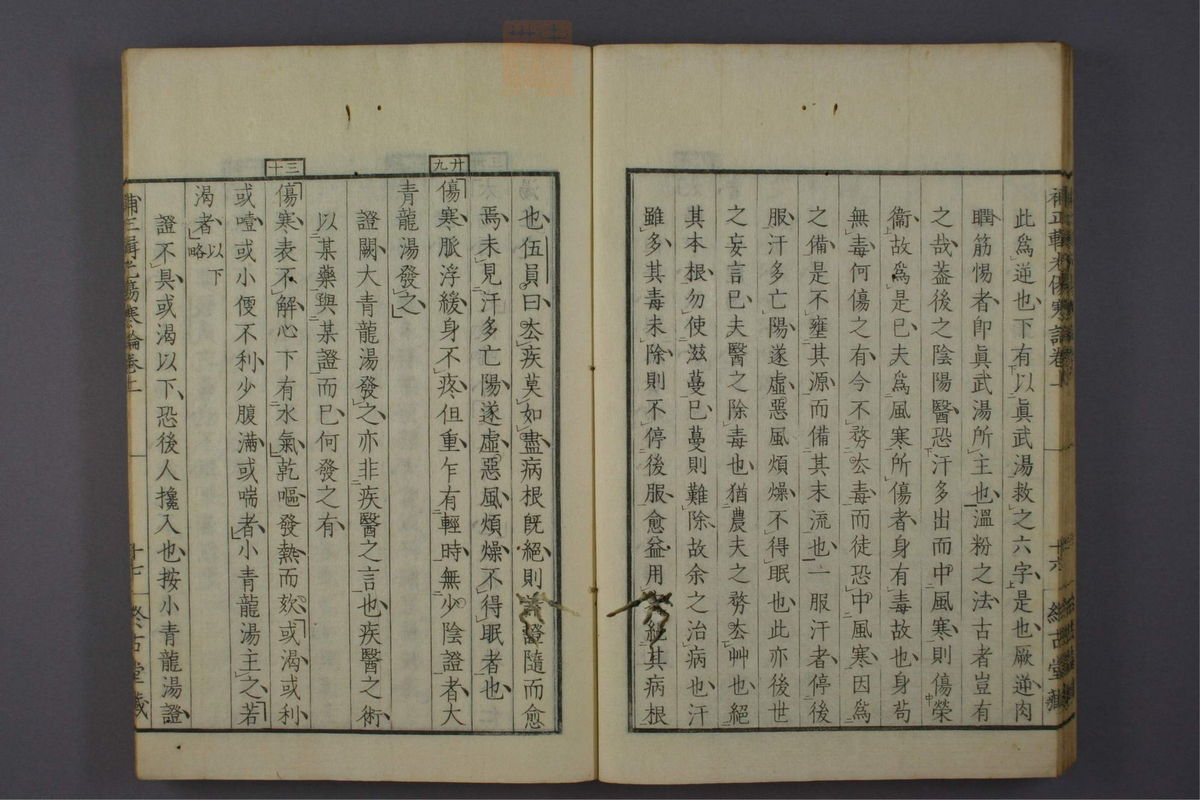 此爲逆也下有以眞武湯救之六字是也厥逆肉
瞤筋惕者卽眞武湯所主也溫粉之法古者豈有
之哉葢後之陰陽醫恐汗多出而中風寒則傷榮
衞故爲是已夫爲風寒所傷者身有毒故也身苟
無毒何傷之有今不務厺毒而徒恐中風寒因爲
之備是不壅其源而備其末流也一服汗者停後
服汗多亡陽遂虛惡風煩燥不得眠也此亦後世
之妄言已夫醫之除毒也猶農夫之務厺艸也絕
其本根勿使滋蔓已蔓則難除故余之治病也汗
雖多其毒未除則不停後服愈益用絕其病根
也伍員曰厺疾莫如盡病根旣絕則證隨而愈
焉未見汗多亡陽遂虛惡風煩燥不得眠者也
廿九
傷寒脈浮緩身不疼但重乍有輕時無少陰證者大
靑龍湯發之
證闕大靑龍湯發之亦非疾醫之言也疾醫之術
以某藥與某證而已何發之有
三十
傷寒表不解心下有水氣乾嘔發熱而欬或渴或利
或噎或小便不利少腹滿或喘者小靑龍湯主之若
渴者以下略
證不具或渴以下恐後人攙入也按小靑龍湯證